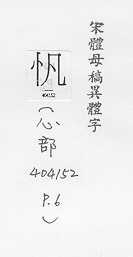 宋體母稿異體字
忛
(心部
404152
P.6
)